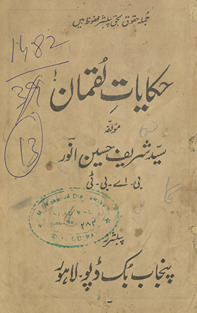 جملہ حقوق بحق پبلشر محفوظ ہیں
1482
حکایات لقمان
13
مؤلفہ
سید شریف حسین انور
بی۔اے۔بی۔ٹی
پبلشرز
پنجاب بک ڈپو۔لاہور